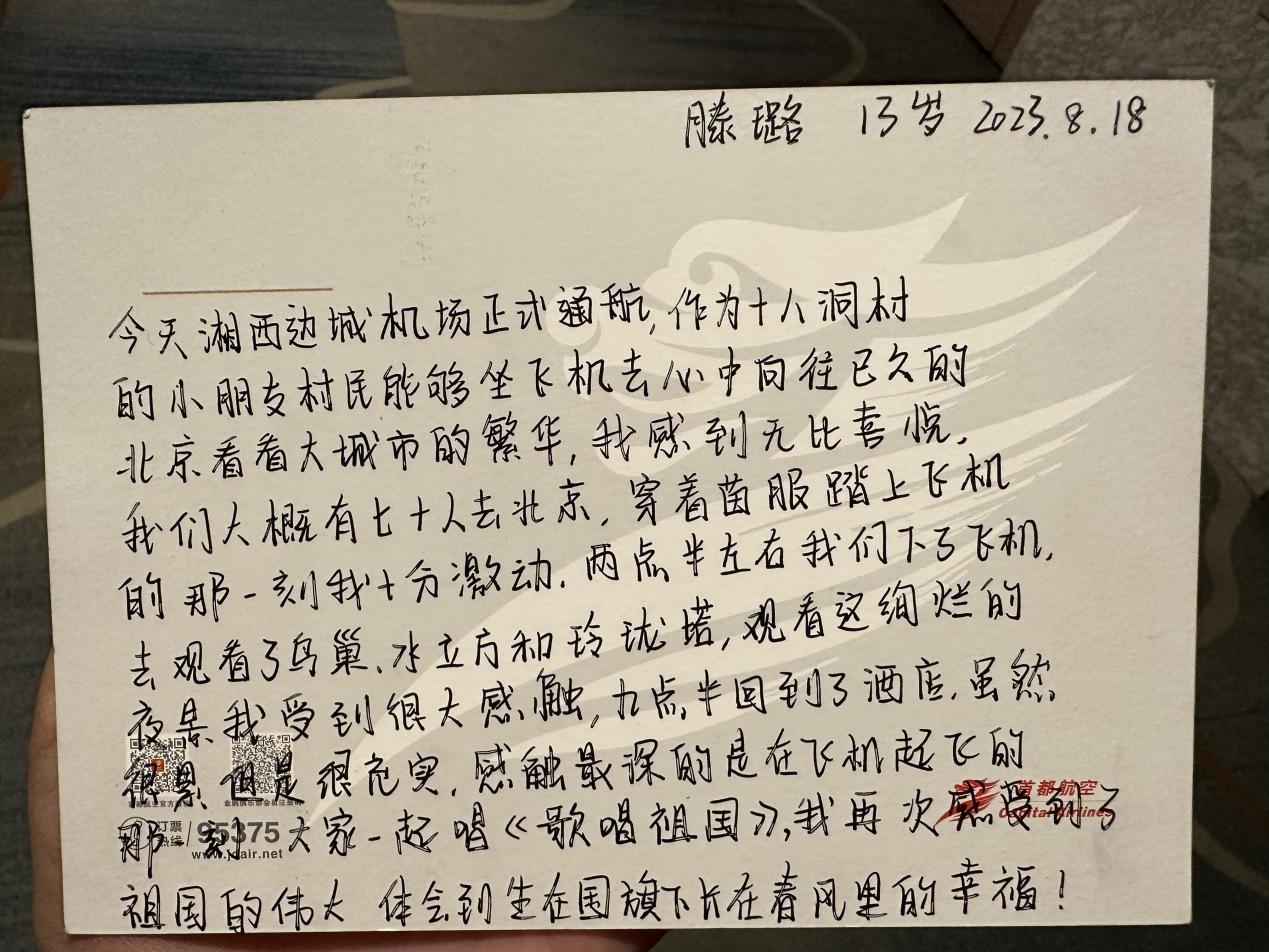 滕璐 13岁 2023.8.18
今天湘西边城机场正式通航,作为十八洞村
的小朋友村民能够坐飞机去心中向往已久的
北京看看大城市的繁华,我感到无比喜悦.
我们大概有七十人去北京,穿着苗服踏上飞机
的那一刻我十分激动.两点半左右我们下了飞机.
去观看了鸟巢、水立方和玲珑塔,观看这绚烂的
夜景我受到很大感触,九点半回到了酒店.虽然
很累但是很充实.感触最深的是在飞机起飞的
那一刻大家一起唱《歌唱祖国》,我再次感受到了
祖国的伟大 体会到生在国旗下长在春风里的幸福!
订票
热线
95375
www.jdair.net
首都航空
Capital Airlines